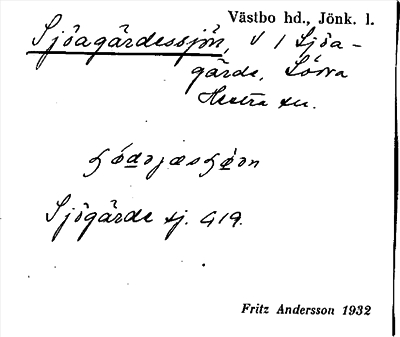 Västbo hd., Jönk. l.
Sjöagärdessjön, V / Sjöa-
gärde, Södra
Hestra sn.
Sjögärde sj. G19.
Fritz Andersson 1932